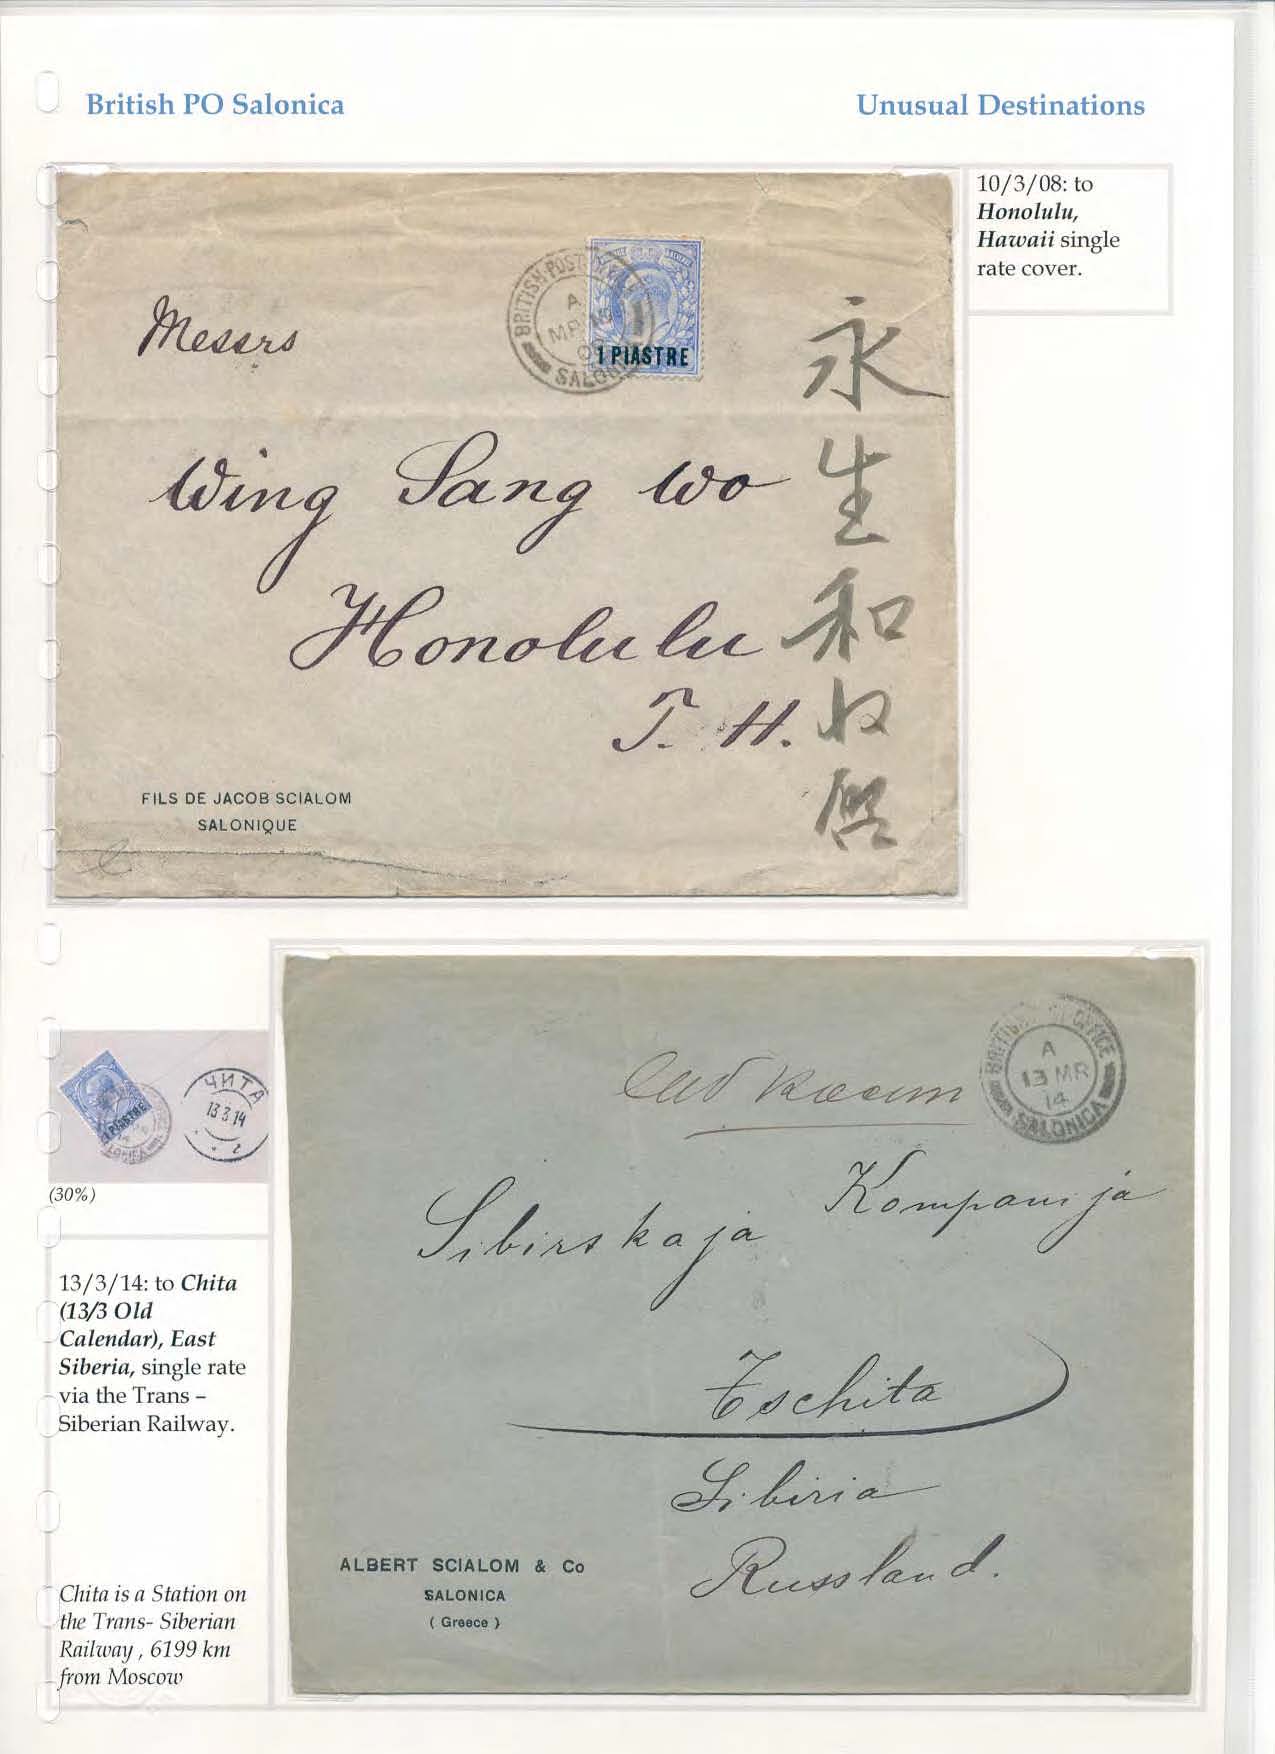 British PO Salonica
Unusual Destinations
10/3/08: to
Honolulu,
Hawaii single
rate cover.
BRITISH POST
A
MR 10
SALONI
1 PIASTRE
Messrs
Wing Sang Wo
Honolulu
T. H.
永生和收啓
FILS DE JACOB SCIALOM
SALONIQUE
1 PIASTRE
ЧИТА
13 3 14
2
(30%)
13/3/14: to Chita
(13/3 Old
Calendar), East
Siberia, single rate
via the Trans –
Siberian Railway.
Chita is a Station on
the Trans- Siberian
Railway , 6199 km
from Moscow
BRITISH OFFICE
A
13 MR
14
SALONICA
Sibirskaja Kompanija
Tschita
Sibiria
Russland.
ALBERT SCIALOM & Co
SALONICA
( Greece )